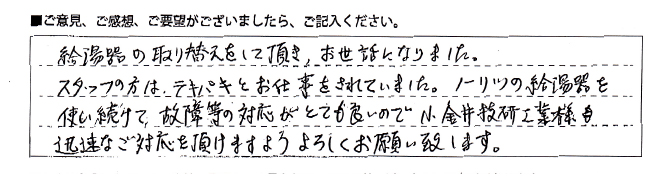 ■ご意見、ご感想、ご要望がございましたら、ご記入ください。
給湯器の取り替えをして頂き、お世話になりました。
スタッフの方は、テキパキとお仕事をされていました。ノーリツの給湯器を
使い続けて、故障等の対応がとても良いので小金井技研工業様も
迅速なご対応を頂けますようよろしくお願い致します。